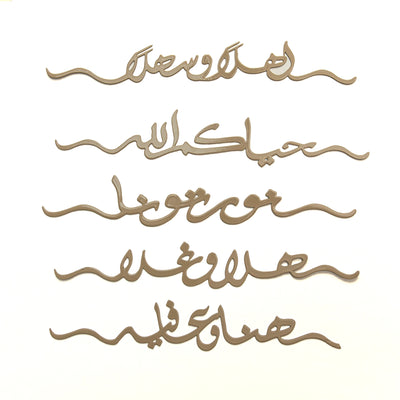 اهلا وسهلا
حياكم الله
نورتونا
هلا وغلا
هنا وعافيه